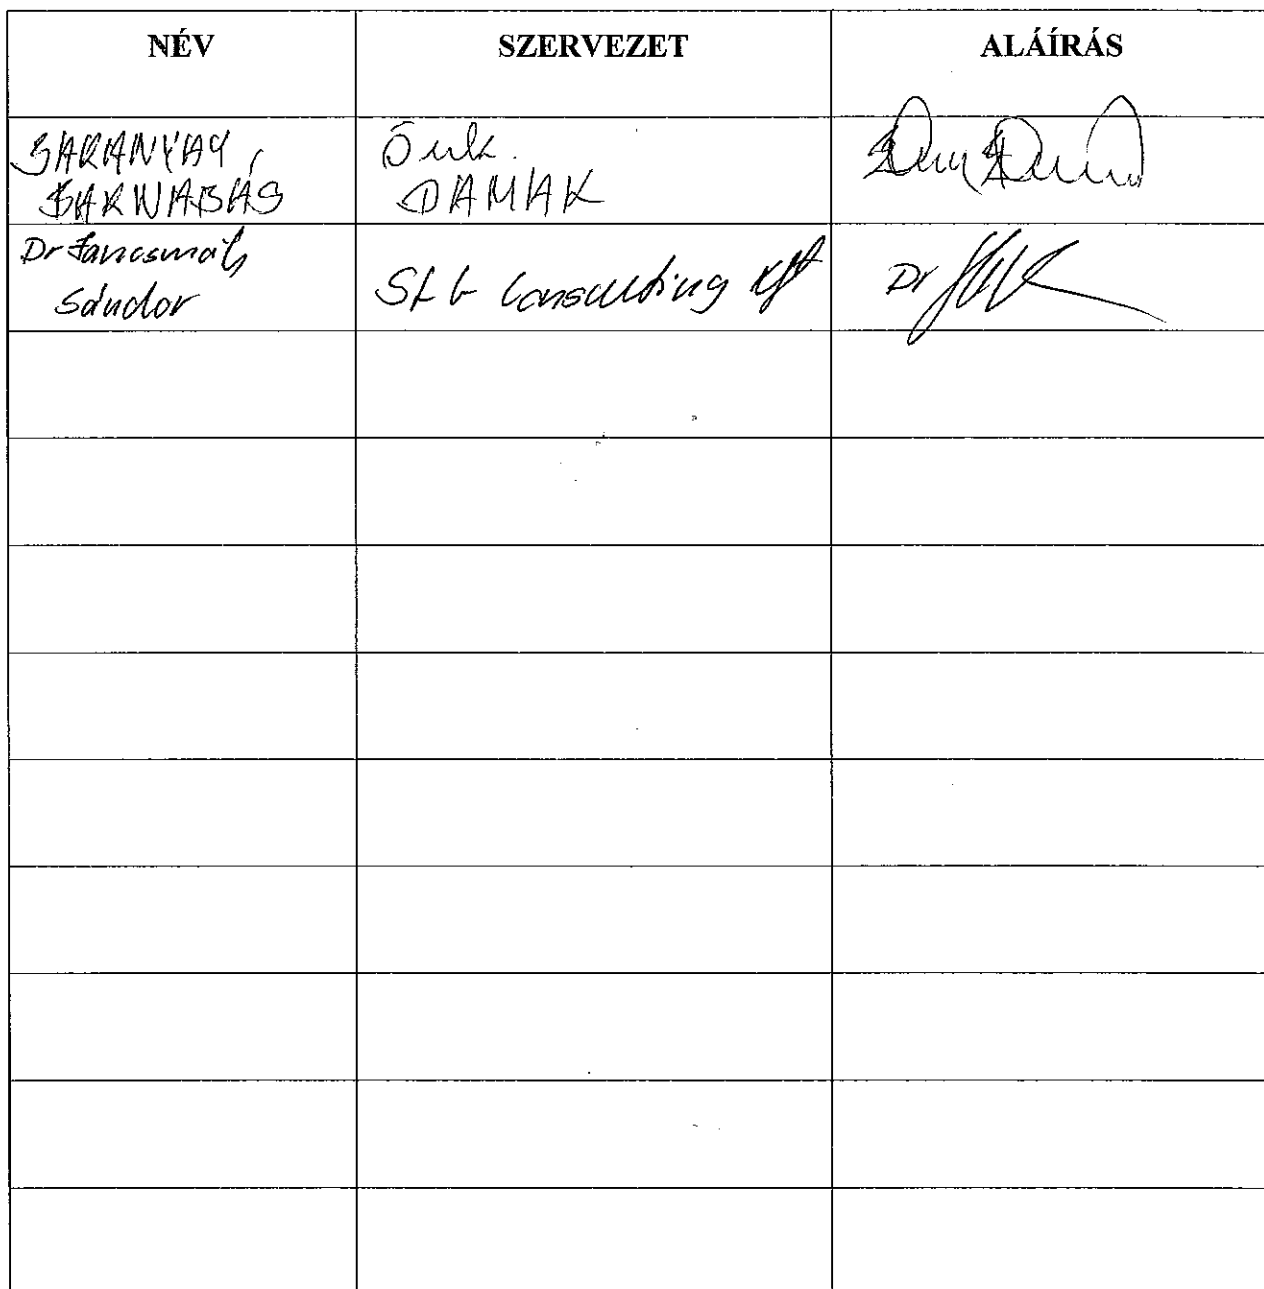 NÉV SZERVEZET ALÁÍRÁS
BARANYAY
BARNABÁS
Önk.
DAMAK
Dr Jancsmály
Sándor
Consulting Kft
Dr